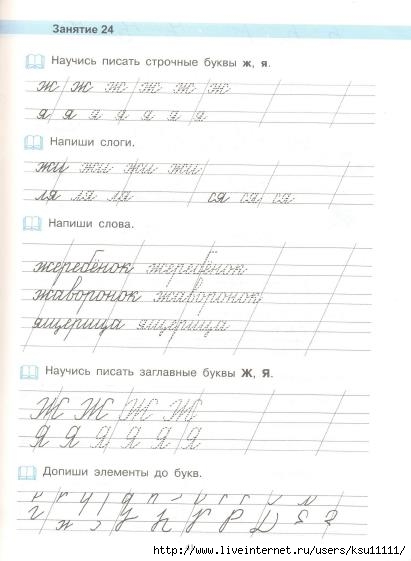 Занятие 24
Научись писать строчные буквы ж, я.
ж ж ж ж ж ж
я я я я я я я
Напиши слоги.
жи жи жи жи
ля ля ля ся ся ся
Напиши слова.
жеребёнок жеребёнок
жаворонок жаворонок
ящерица ящерица
Научись писать заглавные буквы Ж, Я.
Ж Ж Ж Ж
Я Я Я Я Я Я
Допиши элементы до букв.
http://www.liveinternet.ru/users/ksu11111/